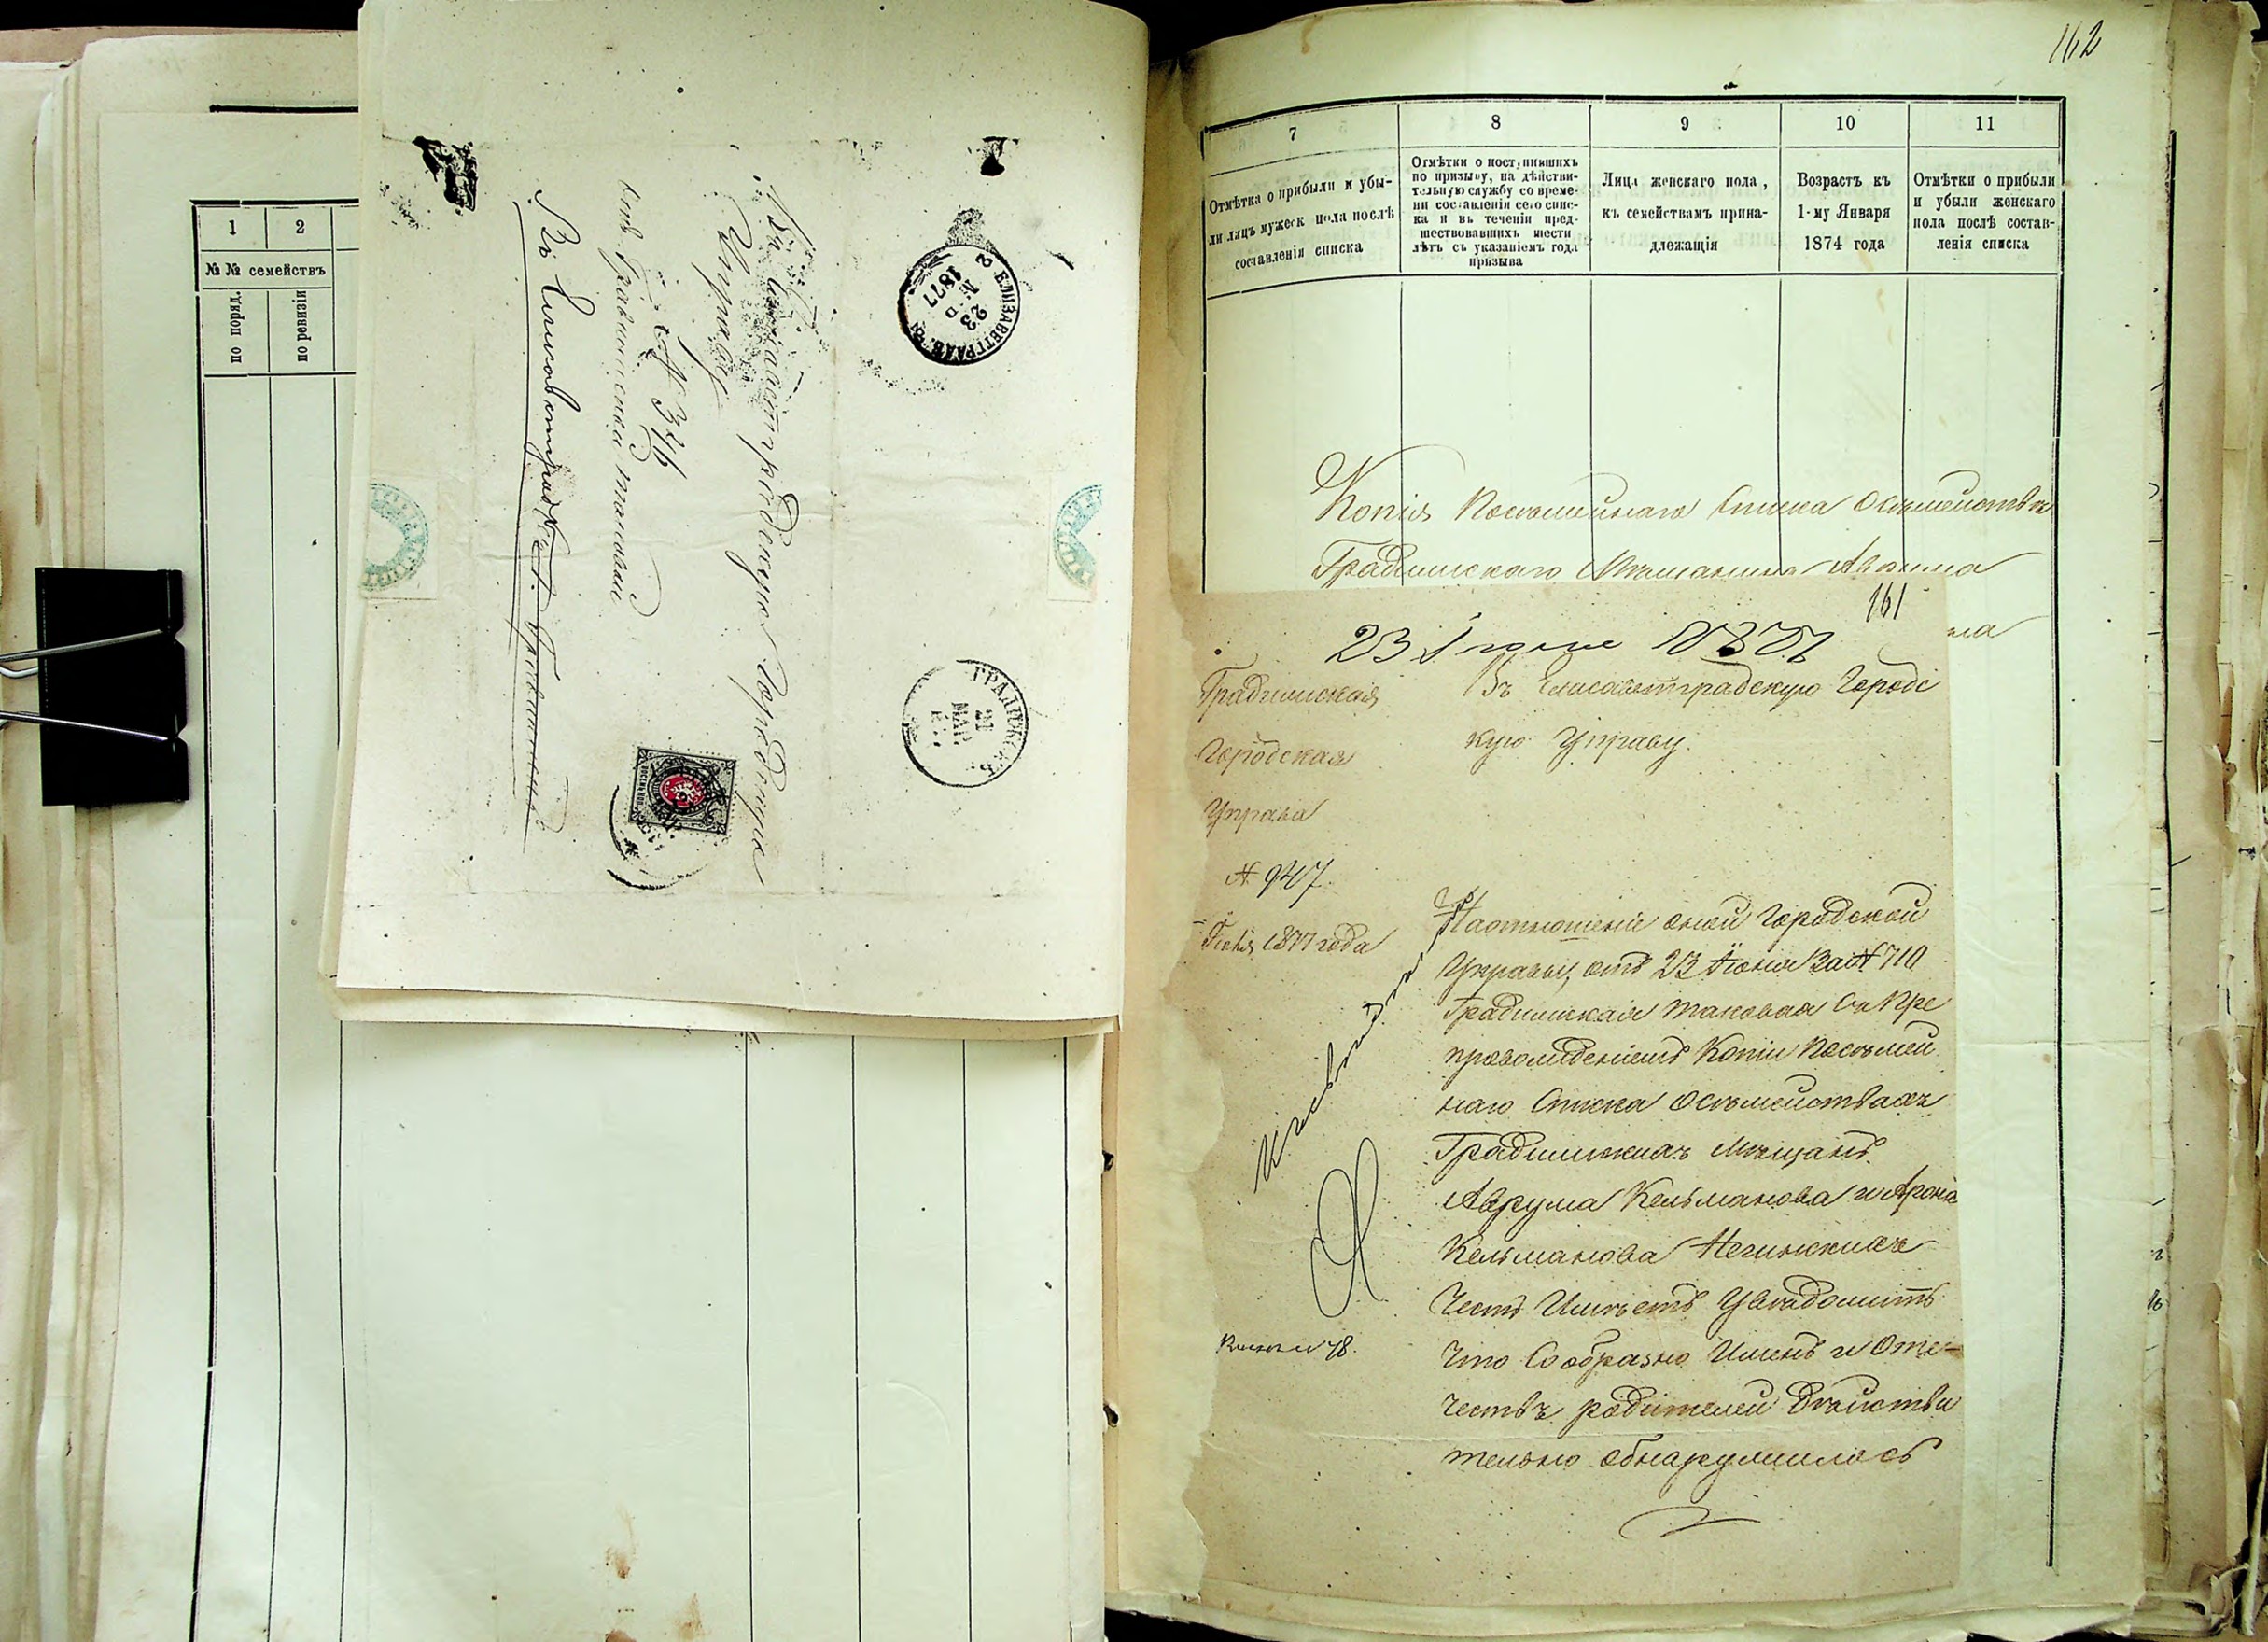 1
2
№ № семействъ
по поряд.
по ревизіи
Въ Елисаветградскую Городскую
Управу
отъ Градижской таковой
№ 346
Въ Елисаветградъ
ЕЛИЗАВЕТГРАДЪ
23
МАР
1877
2
ГРАДИЖСКЪ
21
МАР.
162
7
8
9
10
11
Отмѣтка о прибыли и убы-
ли лицъ мужеск пола послѣ
составленія списка
Отмѣтки о поступившихъ
по призыву, на дѣйстви-
тельную службу со време-
ни составленія сего спис-
ка и въ теченіи пред-
шествовавшихъ шести
лѣтъ съ указаніемъ года
призыва
Лица женскаго пола,
къ семействамъ прина-
длежащія
Возрастъ къ
1-му Января
1874 года
Отмѣтки о прибыли
и убыли женскаго
пола послѣ состав-
ленія списка
Копія Посемейнаго Списка Осемействѣ
Градижскаго Мѣщанина
161
23 Іюля 1877
Градижская
Городская
Управа
№ 947
Іюля 1877 года
Въ Елисаветградскую Городс
кую Управу.
Наотношеніе оной Городской
Управы, отъ 23 Іюня За № 710
Градижская таковая Съ Пре
провожденіемъ Копіи Посемей
наго Списка Осемействахъ
Градижскихъ Мѣщанъ
Аврума Кельманова и Арона
Кельманова Нежинскихъ
Честь Имѣетъ Увѣдомить
Что Сообразно Именъ и Оте-
чествъ родителей Дѣйстви
тельно обнаружилось